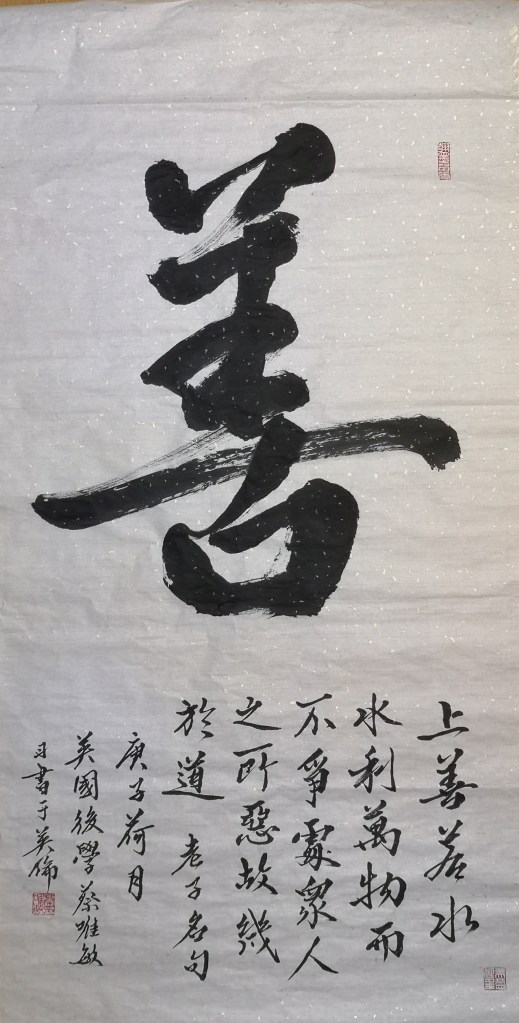 善
上善若水
水利萬物而
不爭處眾人
之所惡故幾
於道 老子名句
庚子荷月
英國後學蔡唯敏
習書于英倫